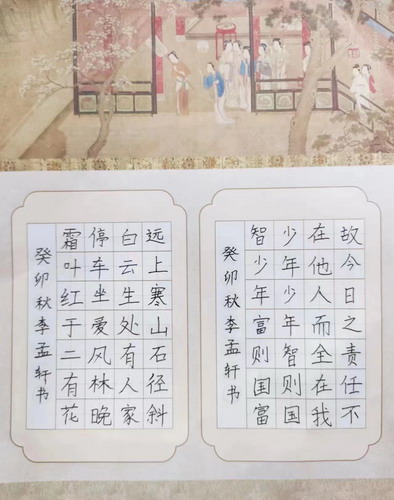 故今日之责任不
在他人而全在我
少年少年智则国
智少年富则国富
癸卯秋李孟轩书
远上寒山石径斜
白云生处有人家
停车坐爱风林晚
霜叶红于二有花
癸卯秋李孟轩书